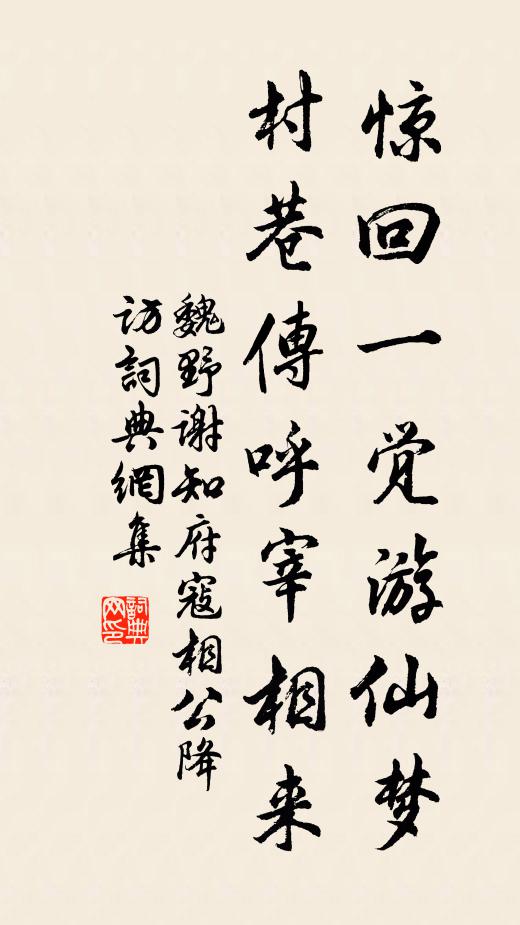 惊回一觉游仙梦
村巷傳呼宰相来
魏野谢知府寇相公降
访詞典網集
詞典网印